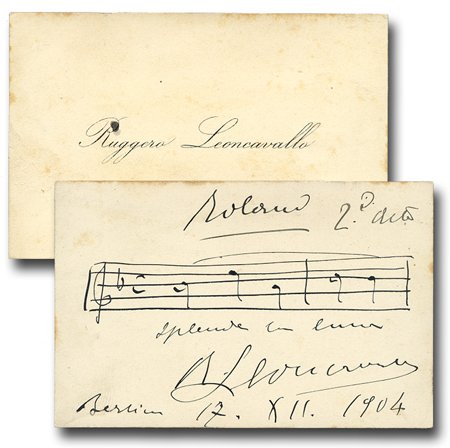 Ruggero Leoncavallo
Roland 2º. atto
splende la luna
R Leoncavallo
Berlin 17. XII. 1904